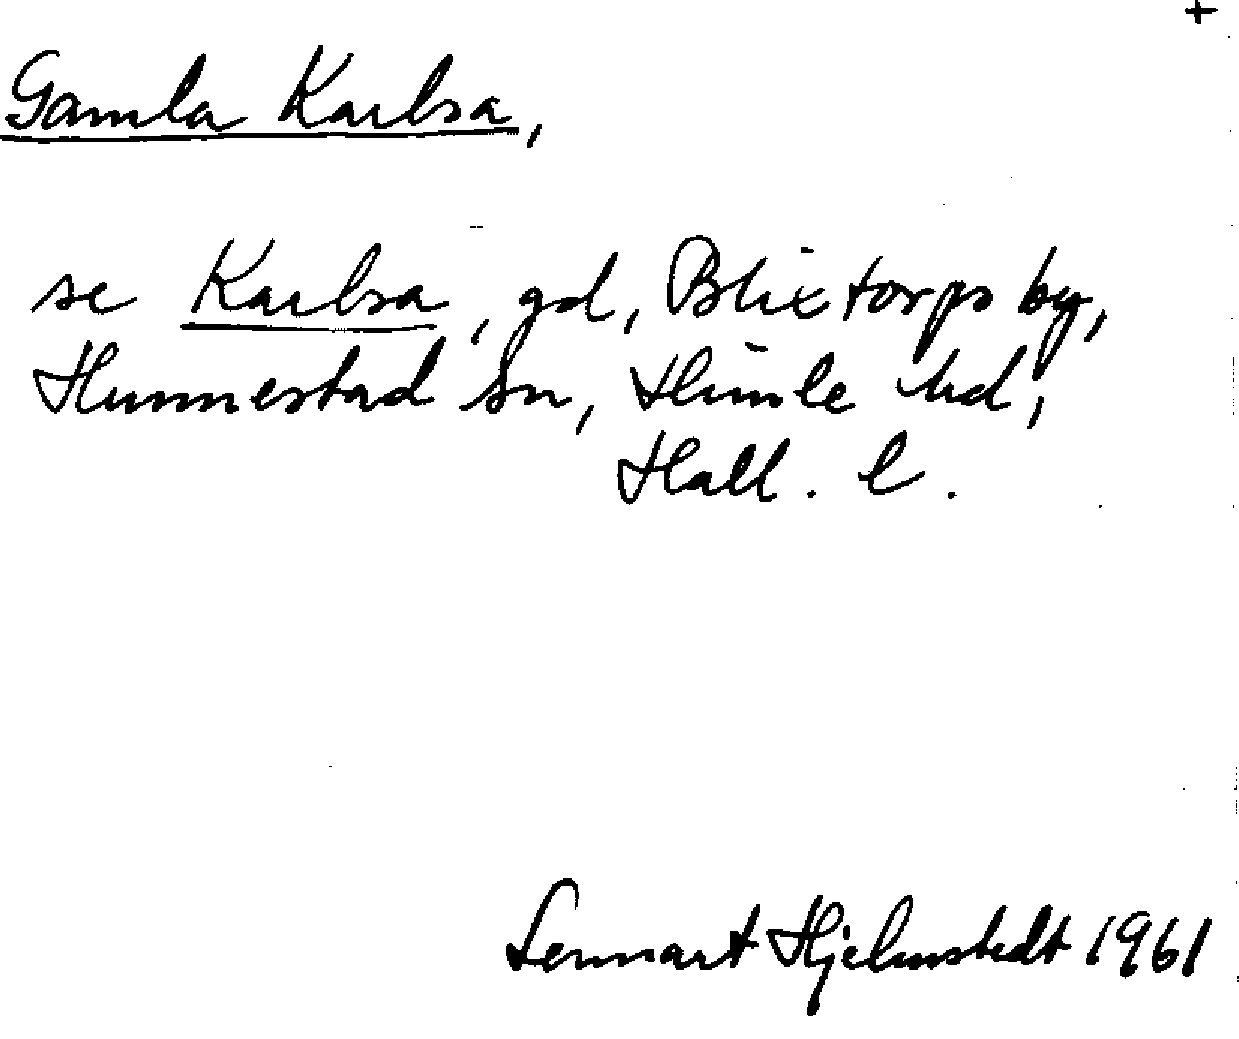 +
Gamla Karlsa,
se Karlsa, gd, Blixtorps by,
Hunnestad sn, Himle hd,
Hall. l.
Lennart Hjelmstedt 1961